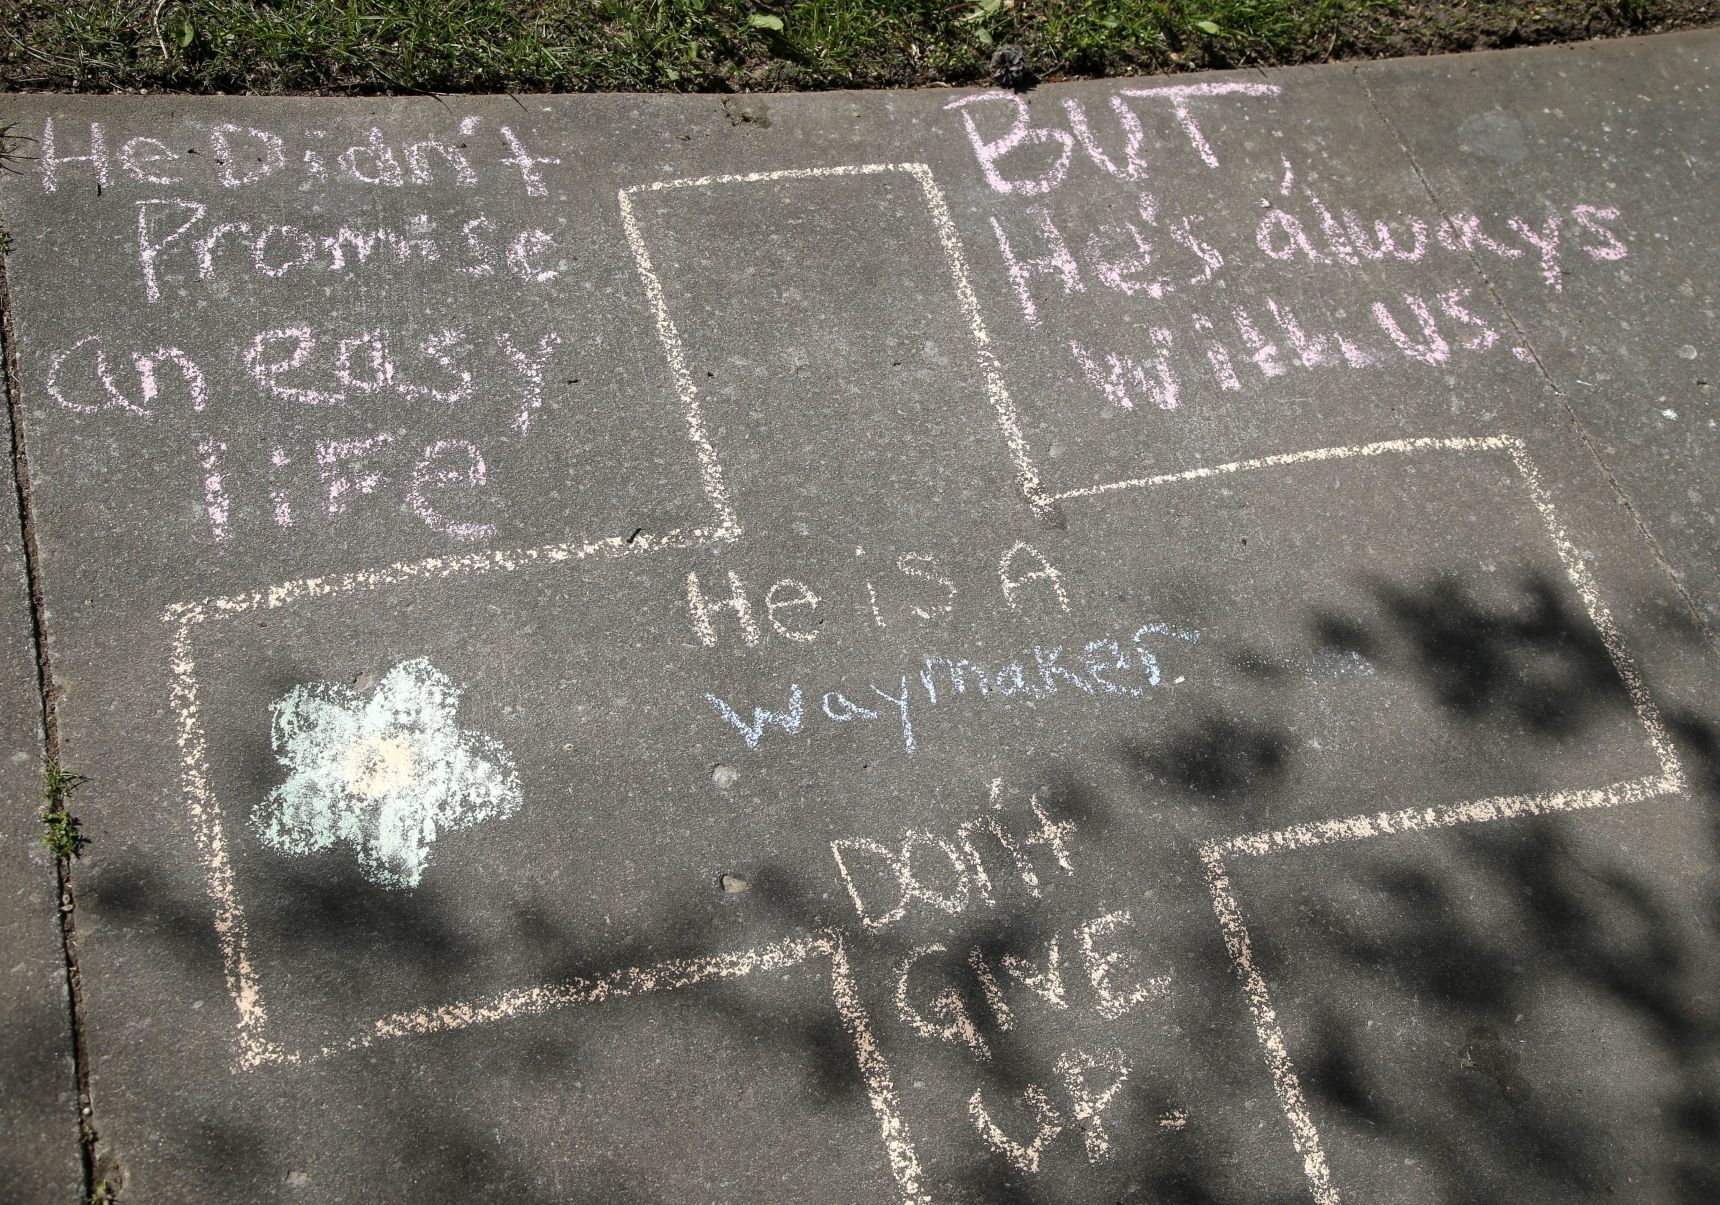 He Didn't
Promise
an easy
liFe
BUT,
He's always
with us.
He is A
waymaker
DON't
GIVE
UP.